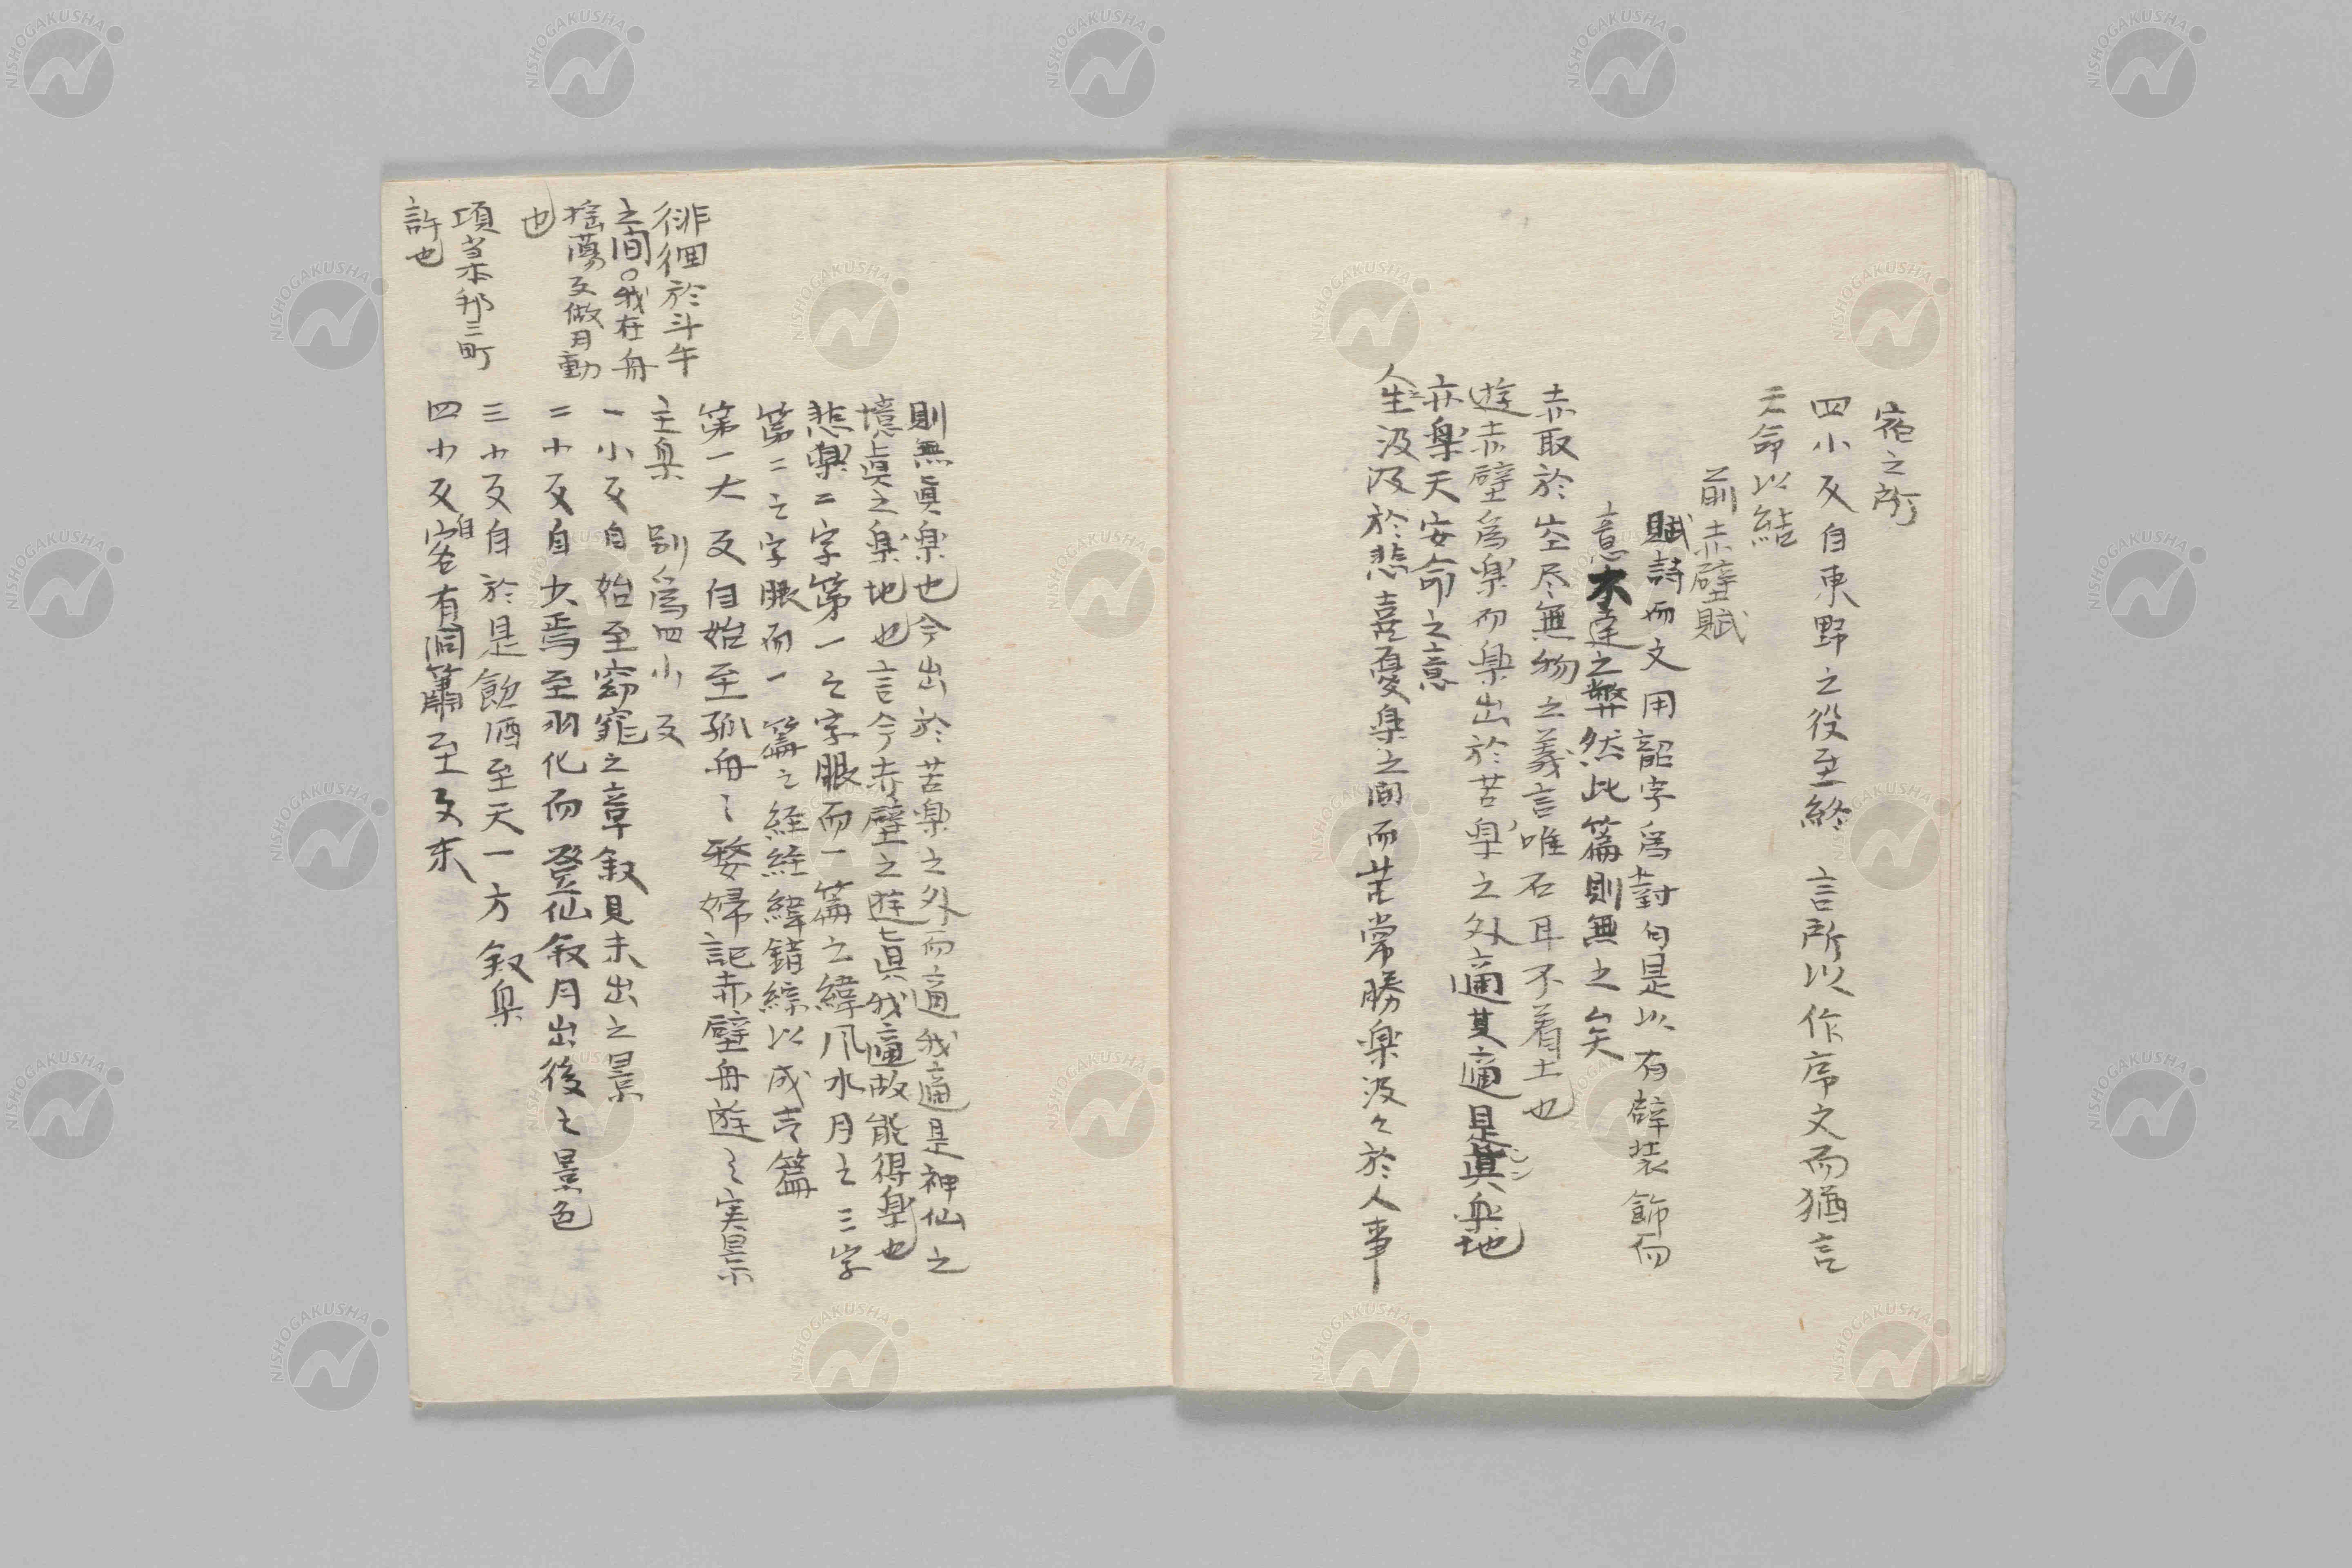 宿之所
四小反自東野之役至終　言所以作序文而猶言
天命以結
前赤壁賦
賦詩而文用韶字為對句是以有辟装飾而
意不達之弊然此篇則無之矣
赤取於空尽無物之義言唯石耳不着土也
遊赤壁為楽而楽出於苦楽之外適其適是眞楽地
亦楽天安命之意
人生汲汲於悲喜憂楽之間而苦常勝楽汲々於人事
則無眞楽也今出於苦楽之外而適我適是神仙之
境眞之楽地也言今赤壁之遊眞我適故能得楽也
悲楽二字第一之字眼而一篇之緯風水月之三字
第二之字眼而一篇之経経緯錯綜以成吉篇
第一大反自始至孤舟之嫠婦記赤壁舟遊之実景
主楽　別為四小反
一小反自始至窈窕之章叙見未出之景
二小反自少焉至羽化而登仙叙月出後之景色
三小反自於是飲酒至天一方叙楽
四小反自客有洞簫至反末
徘徊於斗牛
之間。我在舟
揺蕩反做月動
也
項當本邦三町
許也
NISHOGAKUSHA